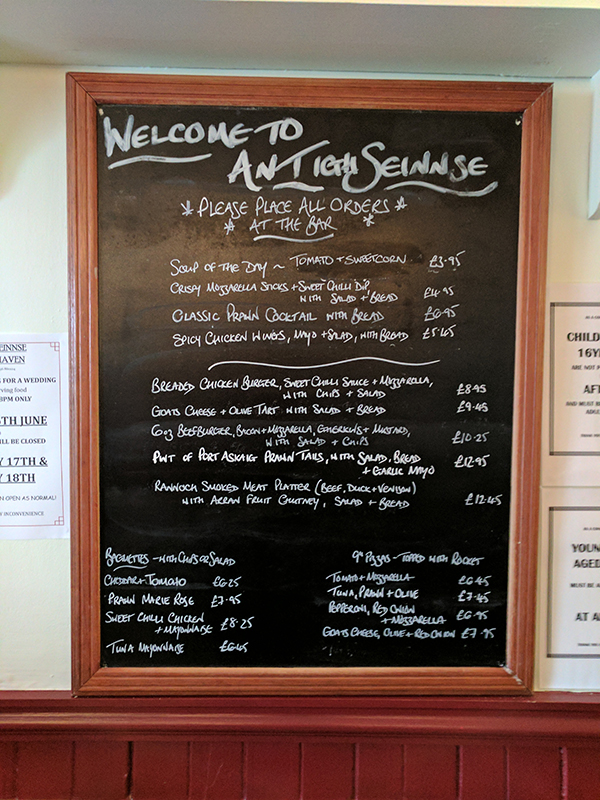 WELCOME TO
AN TIGH SEINNSE
* PLEASE PLACE ALL ORDERS *
* AT THE BAR *
SOUP OF THE DAY ~ TOMATO + SWEETCORN £3.95
CRISPY MOZZARELLA STICKS + SWEET CHILLI DIP, £4.95
WITH SALAD + BREAD
CLASSIC PRAWN COCKTAIL WITH BREAD £6.95
SPICY CHICKEN WINGS, MAYO + SALAD, WITH BREAD £5.45
BREADED CHICKEN BURGER, SWEET CHILLI SAUCE + MOZZARELLA, £8.95
WITH CHIPS + SALAD
GOATS CHEESE + OLIVE TART WITH SALAD + BREAD £9.45
6oz BEEFBURGER, BACON + MOZZARELLA, GHERKINS + MUSTARD, £10.25
WITH SALAD + CHIPS
PINT OF PORT ASKAIG PRAWN TAILS, WITH SALAD, BREAD £12.95
+ GARLIC MAYO
RANNOCH SMOKED MEAT PLATTER (BEEF, DUCK + VENISON)
WITH ARRAN FRUIT CHUTNEY, SALAD + BREAD £12.45
BAGUETTES - WITH CHIPS OR SALAD
CHEDDAR + TOMATO £6.25
PRAWN MARIE ROSE £7.95
SWEET CHILLI CHICKEN
+ MAYONNAISE £8.25
TUNA MAYONNAISE £6.45
9" PIZZAS - TOPPED WITH ROCKET
TOMATO + MOZZARELLA £6.45
TUNA, PRAWN + OLIVE £7.45
PEPPERONI, RED ONION
+ MOZZARELLA £6.95
GOATS CHEESE, OLIVE + RED ONION £7.95
EINNSE
HAVEN
G FOR A WEDDING
rving food
8PM ONLY
5TH JUNE
ILL BE CLOSED
Y 17TH &
Y 18TH
N OPEN AS NORMAL!
Y INCONVENIENCE
CHILD
16Y
ARE NOT P
AF
AND MUST B
ADUL
YOUN
AGED
MUST BE A
AT A